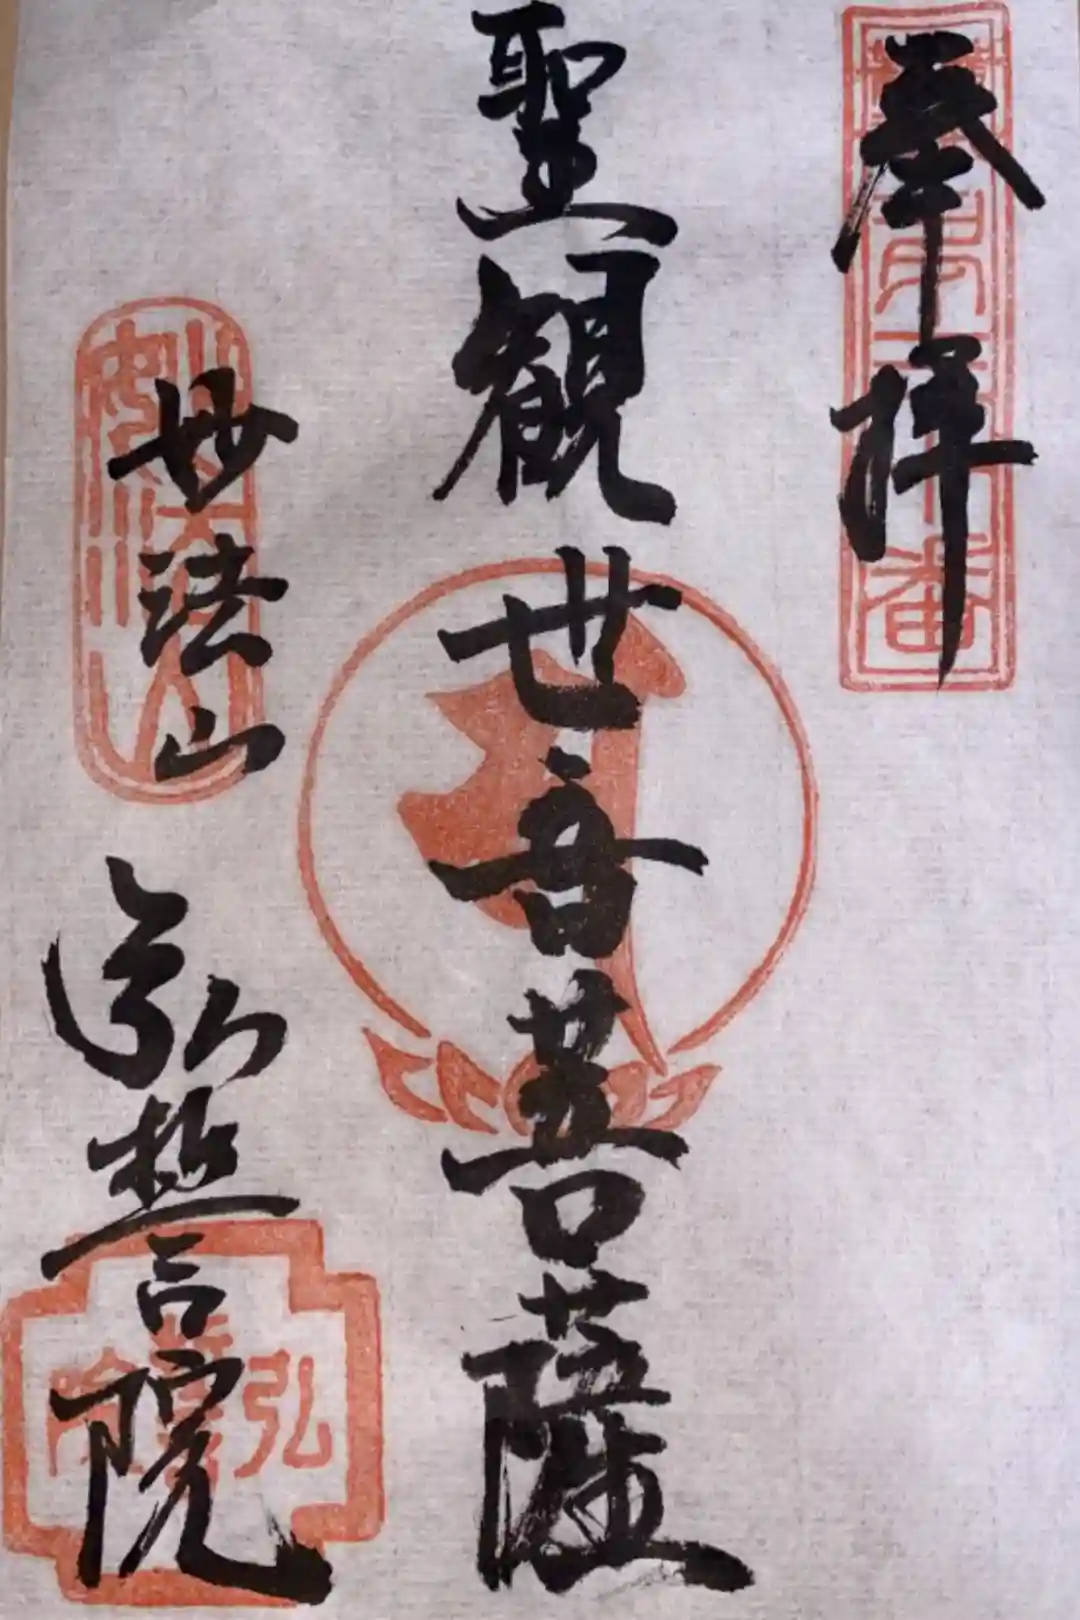 奉拝
聖観世音菩薩
妙法山
弘誓院